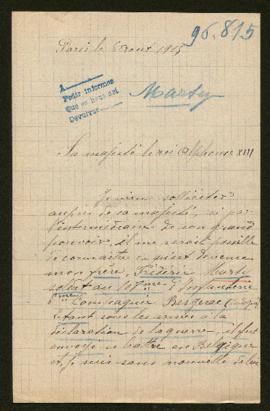 96.815
Paris le 6 aout 1915
A
Pedir informes
que se hace así
Devolver
Marty
Sa majesté le roi Alphonse XIII
Je viens solliciter
auprès de sa majesté, si par
l'intermédiaire de son grand
pouvoir, il me serait possible
de connaître ce qu'est devenu
mon frère, Frédéric Marty
soldat au 108me d'Infanterie
me Compagnie Bergerac
étant sous les armes à la
déclaration de la guerre, il fut
envoyé se battre en Belgique
et je suis sans nouvelle de lui